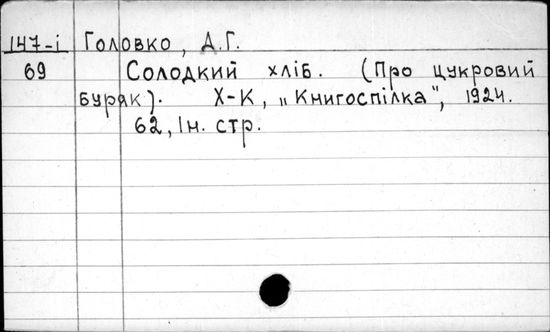 147-і Головко, Д.Г.
69 Солодкий хліб. (Про цукровий
буряк). Х-К, „Книгоспілка", 1924.
62, Ін. стр.